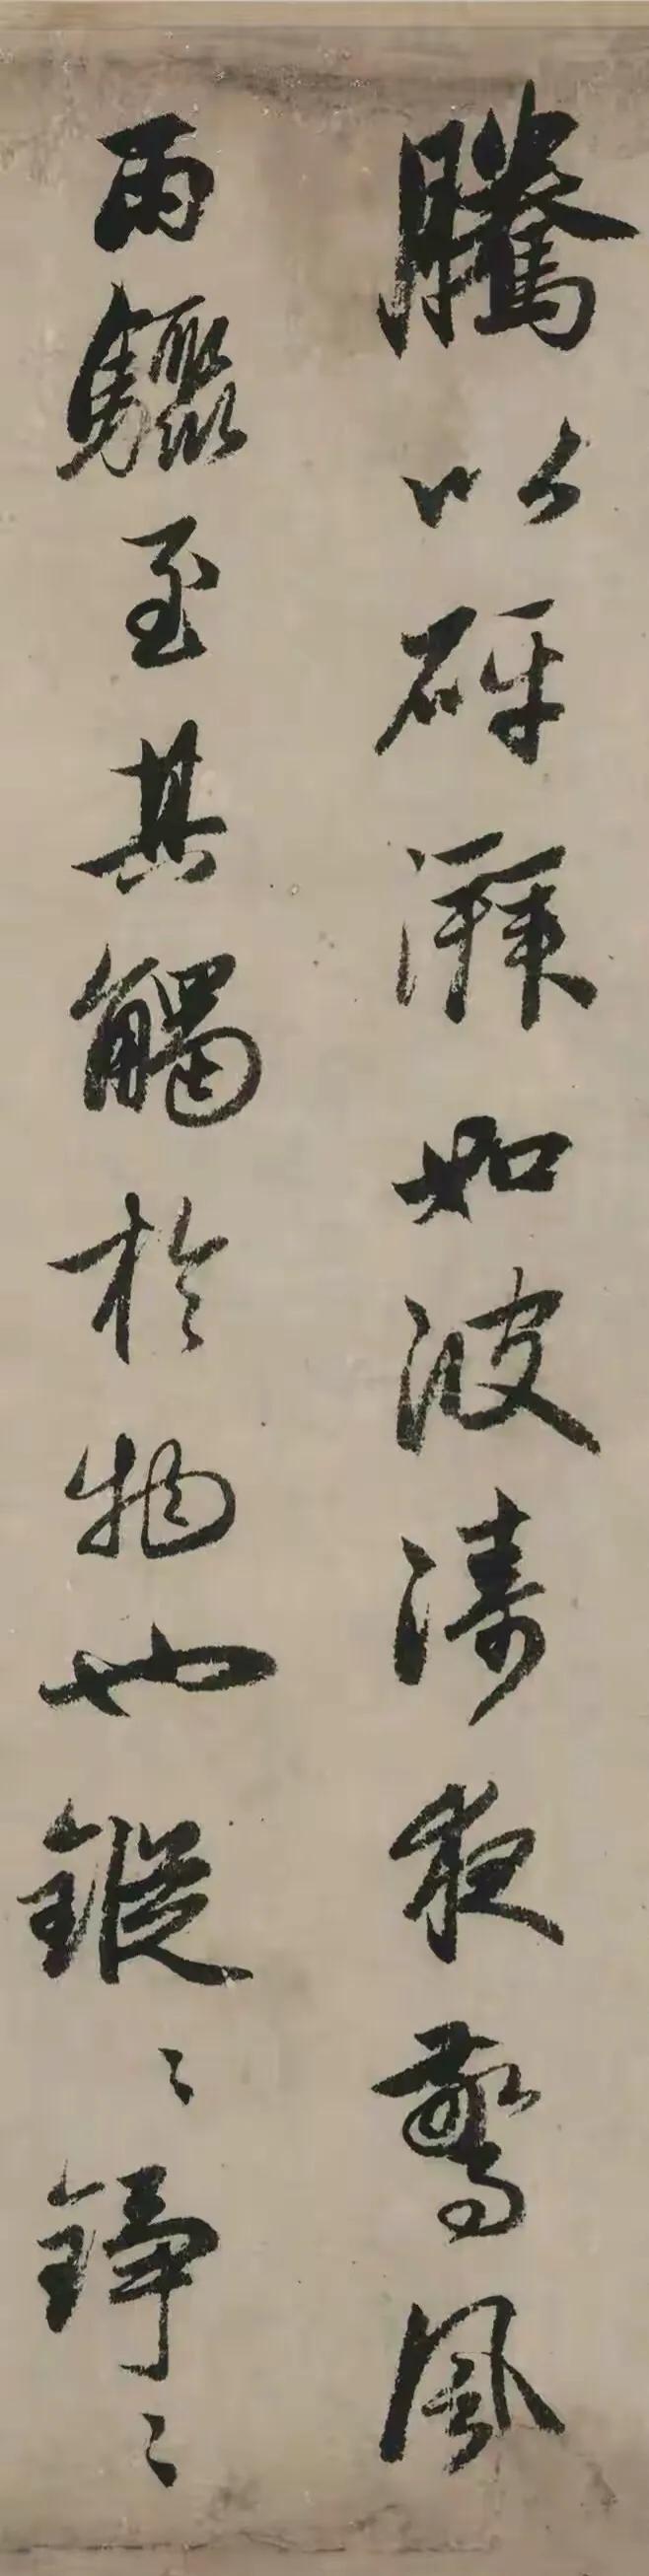 騰以砰湃如波濤夜驚風
雨驟至其觸於物也鏦〻錚〻